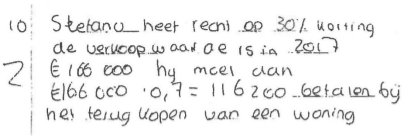 10 Stefano heet recht op 30% korting
de verkoop waarde is in 2017
2 € 166 000 hy moet aan
€166 000 · 0,7 = 116 200 betalen bij
het terug kopen van een woning